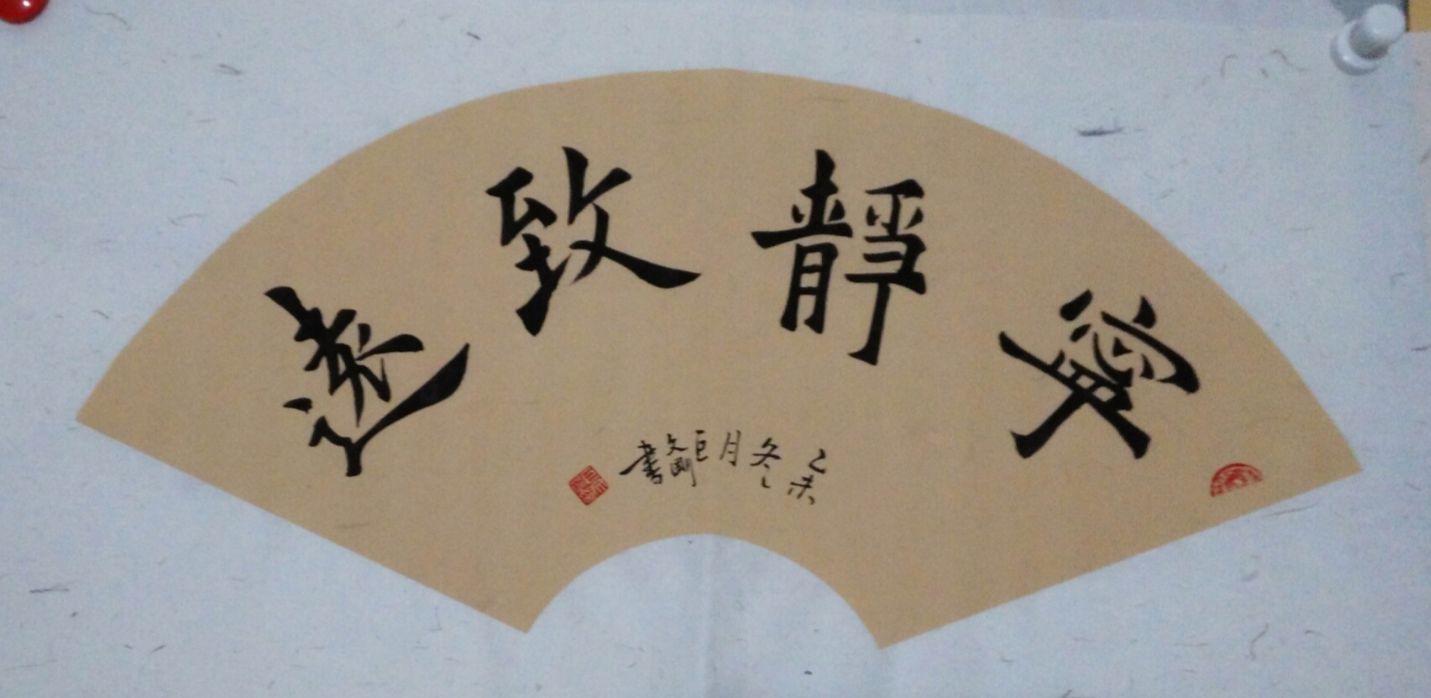 寧靜致遠
乙未冬月巨文剛書